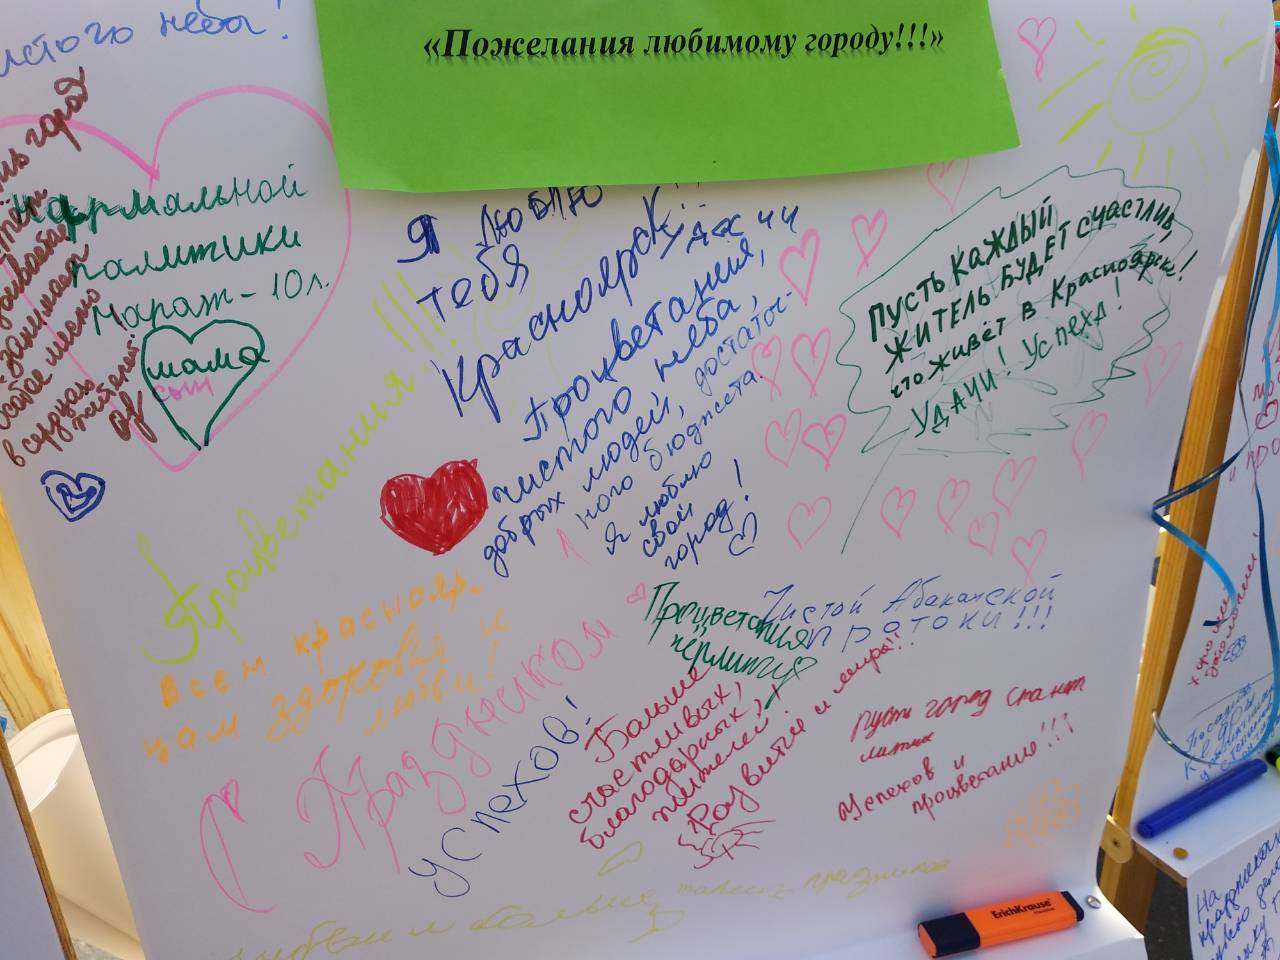 «Пожелания любимому городу!!!»
чистого неба!
город
занимает
особое место
в сердцах
жителей.
нормальной
политики
Марат - 10 л.
мама
сын
Я люблю
тебя
Красноярск!!!
Удачи
Процветания,
чистого неба,
добрых людей, достаточ-
ного бюджета.
Я люблю
свой
город!
Пусть каждый
житель будет счастлив,
что живёт в Красноярске!
Удачи! Успеха!
Процветания!!!
всем краснояр.
цам здоровья и
любви!
С Праздником
Успехов!
Процветания
Чистой Абаканской
протоки!!!
Больше
счастливых,
благодарных,
жителей!
Развития и мира!!
Пусть город станет
Успехов и
процветание!!!
любви и больше таких праздников
ErichKrause
На